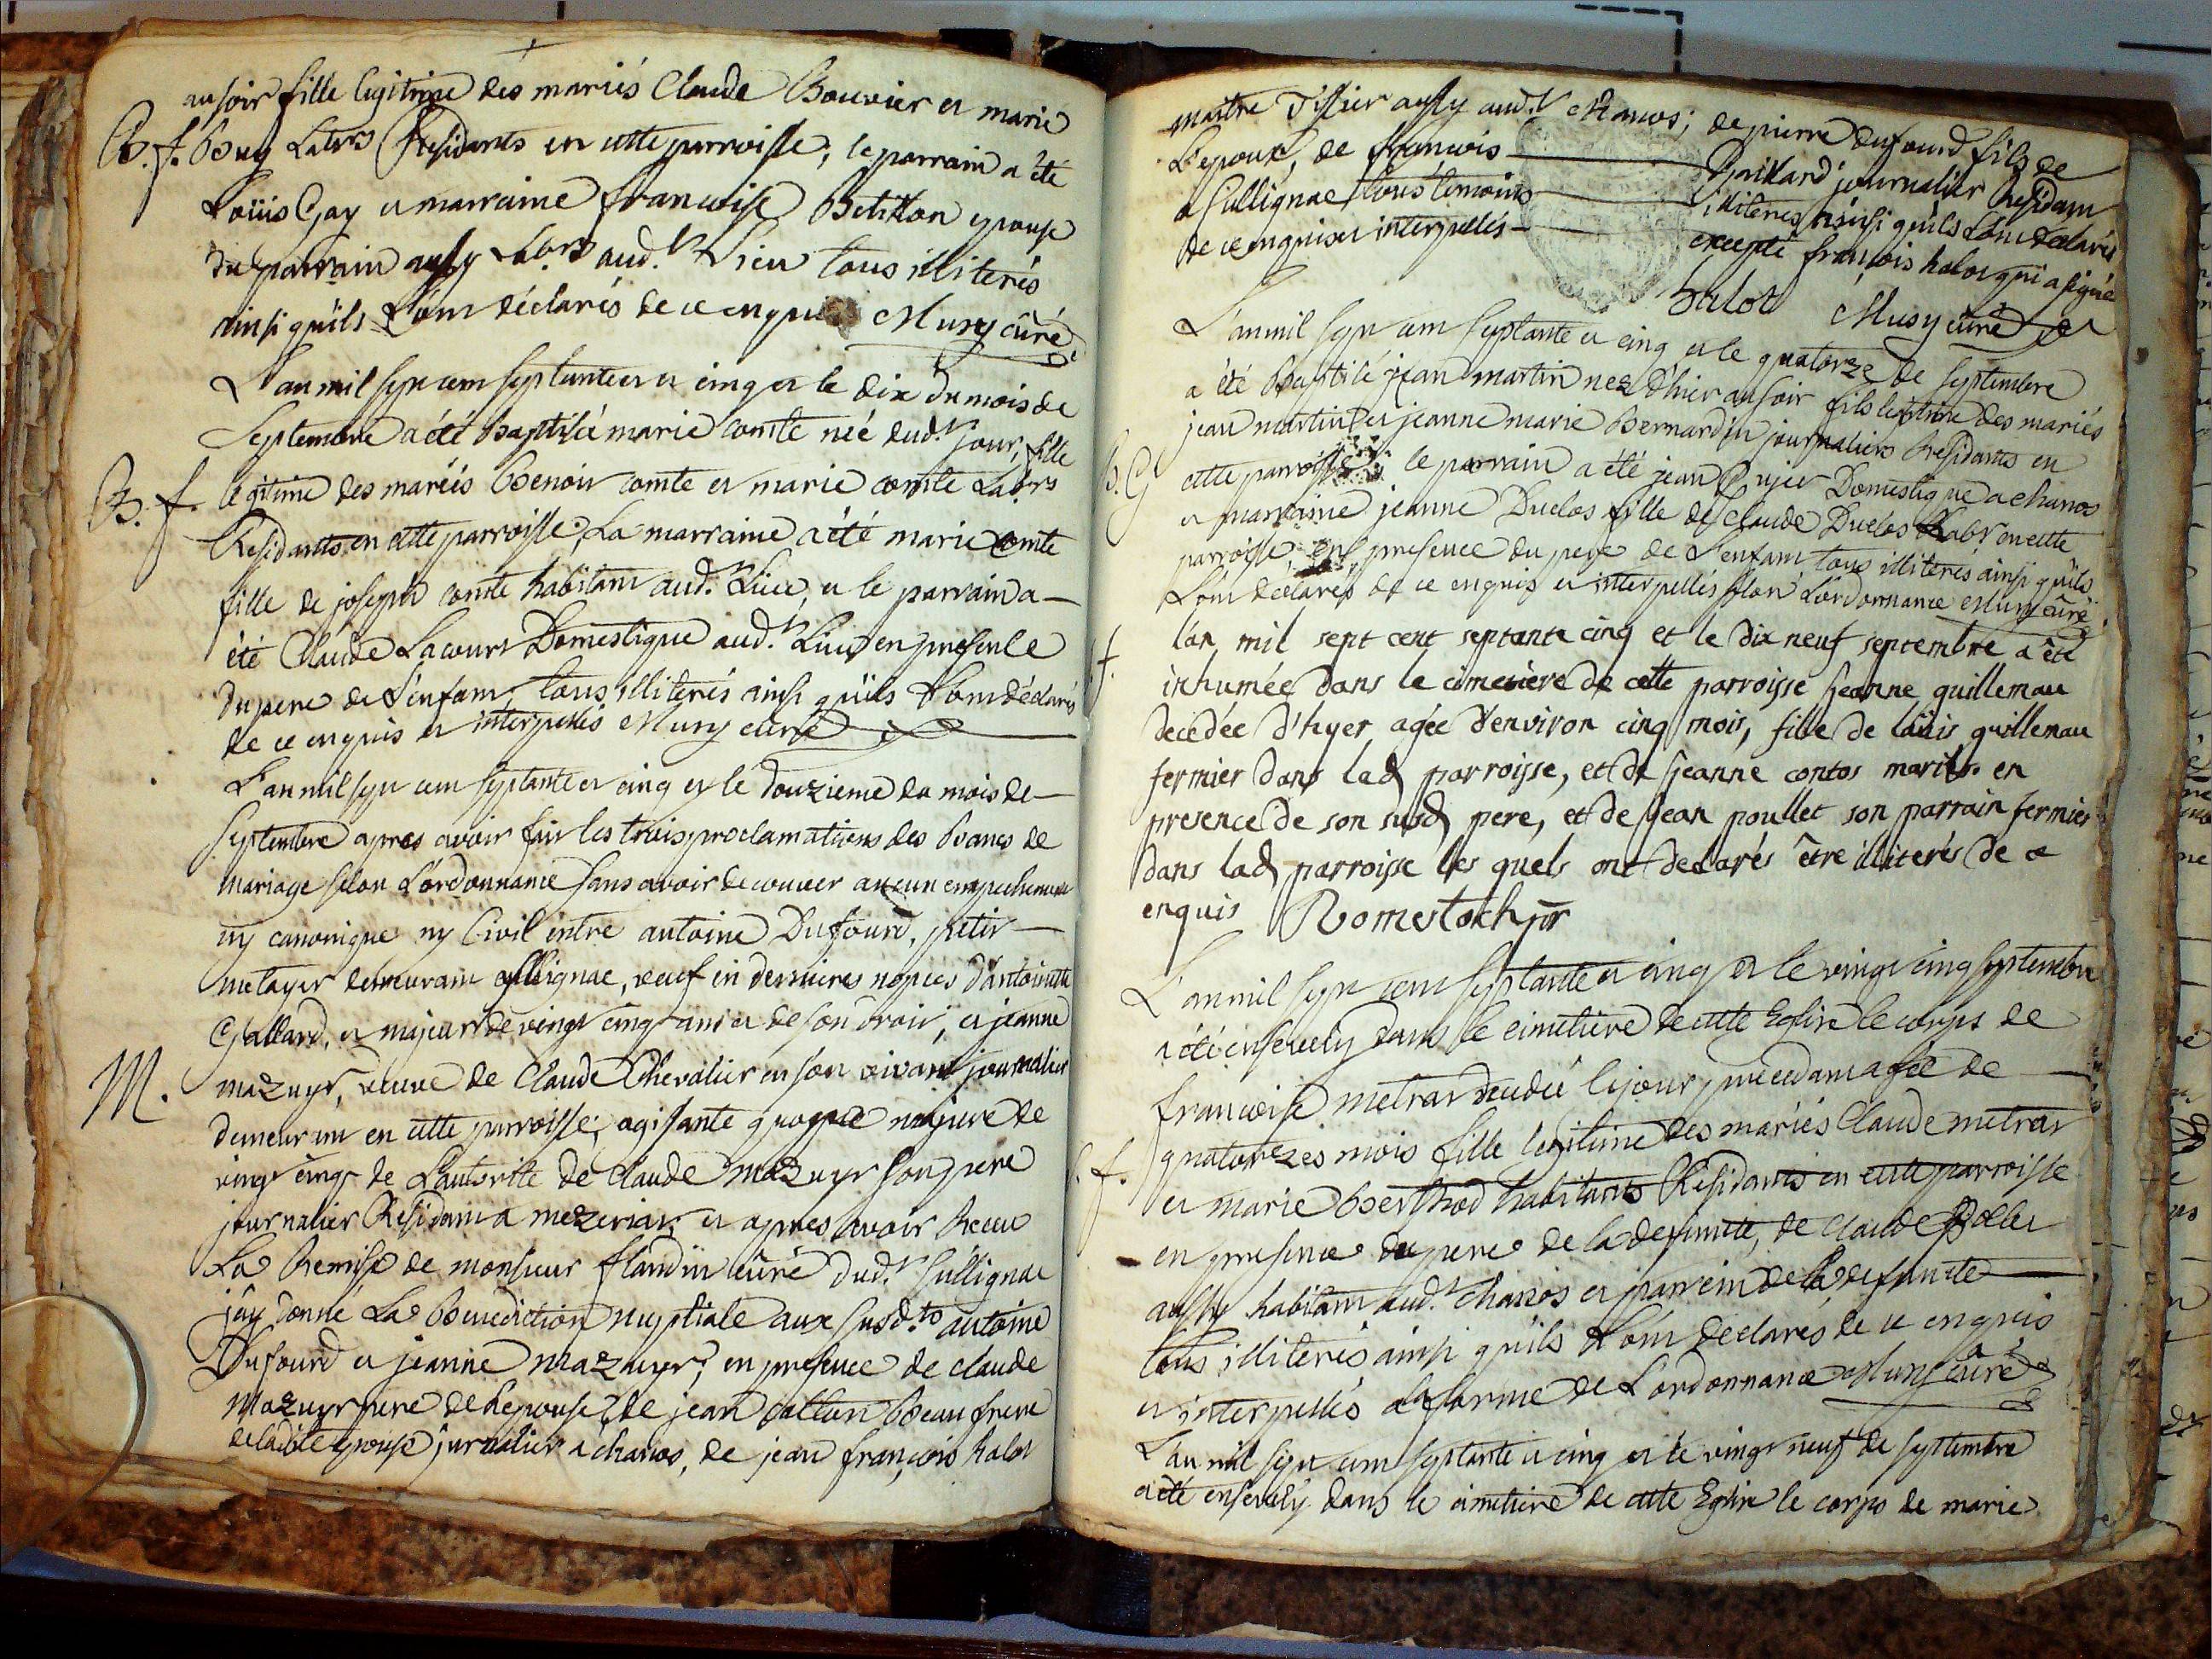 au soir fille legitime des mariés Claude Bouvier et marie
B. f. Bug Lab.rs Residants en cette parroisse, le parrain a été
Loüis Gay et marraine francoise Betillon epouse
du parrain aussy Lab.rs aud.t Lieu tous illiterés
ainsi quils L'ont déclarés de ce enquis Musy curé
L'an mil sept cent septante et cinq et le dix du mois de
Septembre a été baptisée marie comte née dud.t jour, fille
B. f. legitime des mariés Benoit comte et marie comte Lab.rs
Residants en cette parroisse, La marraine a été marie comte
fille de joseph comte habitant aud.t Lieu, et le parrain a
été Claude Lacour Domestique aud.t Lieu en presence
du pere de L'enfant, tous illiterés ainsi quils L'ont déclarés
de ce enquis et interpellés Musy curé
L'an mil sept cent septante et cinq et le douzieme du mois de
Septembre apres avoir fait les trois proclamations des Bancs de
mariage selon L'ordonnance sans avoir decouver aucun empechement
ny canonique ny Civil entre antoine Dufourd, petit
metayer demeurant a Sullignac, veuf en dernieres nopces d'antoinette
Gallard, et majeur de vingt cinq ans et de son droit, et jeanne
M. mazuyr, veuve de Claude Chevalier en son vivant journalier
demeurant en cette parroisse, agissante quoyque majeure de
vingt cinq de L'autorite de Claude mazuyr son pere
journalier Residant a mezeriat, et apres avoir Receu
La Remise de monsieur flandin curé dud.t Sullignac
j'ay donné La Benediction nuptiale aux susd.ts antoine
Dufourd et jeanne mazuyr, en presence de claude
Mazuyr pere de Lepouse, de jean Beau frere
de ladite epouse journalier a chanos, de jean françois halot
maitre Tissier aussy aud.t Chanos; de pierre dufourd fils de
L'epoux, de francois Gaillard journalier Residant
a Sullignac tous temoins illiterés ainsi quils L'ont declarés
de ce enquis et interpellés excepté françois halot qui a signé
halot Musy curé
L'an mil sept cent septante et cinq et le quatorze de septembre
a été Baptisé jean martin nez d'hier au soir fils legitime des mariés
jean martin et jeanne marie Bernardin journaliers Residants en
B. G cette parroisse le parrain a été jean Pujer Domestique a chanos
et marraine jeanne Duclos fille de Claude Duclos Lab.r en cette
parroisse, en presence du pere de L'enfant tous illiterés ainsi quils
L'ont declarés de ce enquis et interpellés selon L'ordonnance Musy curé
f. l'an mil sept cent septante cinq et le dix neuf septembre a été
inhumée dans le cimetière de cette parroisse Jeanne guillemau
decédée d'hyer, agée d'environ cinq mois, fille de loüis guillemau
fermier dans lad parroisse, et de Jeanne contos mariés. en
presence de son susd pere, et de Jean poullet son parrain fermier
dans lad parroisse les quels ont declarés être illiterés de ce
enquis
L'an mil sept cent septante et cinq et le vingt cinq septembre
a été ensevely dans le cimetiere de cette Eglise le corps de
francoise metrat decedeé le jour precedant agée de
quatorzes mois fille legitime des mariés Claude metrat
f. et marie Berthod habitants Residants en cette parroisse
en presence du pere de la defunte, de claude
aussy habitant aud.t chanos et parrein de la defunte
tous illiterés ainsi quils L'ont declarés de ce enquis
et interpellés a la forme de L'ordonnance Musy curé
L'an mil sept cent septante et cinq et le vingt neuf de septembre
a été ensevely dans le cimetiere de cette Eglise le corps de marie